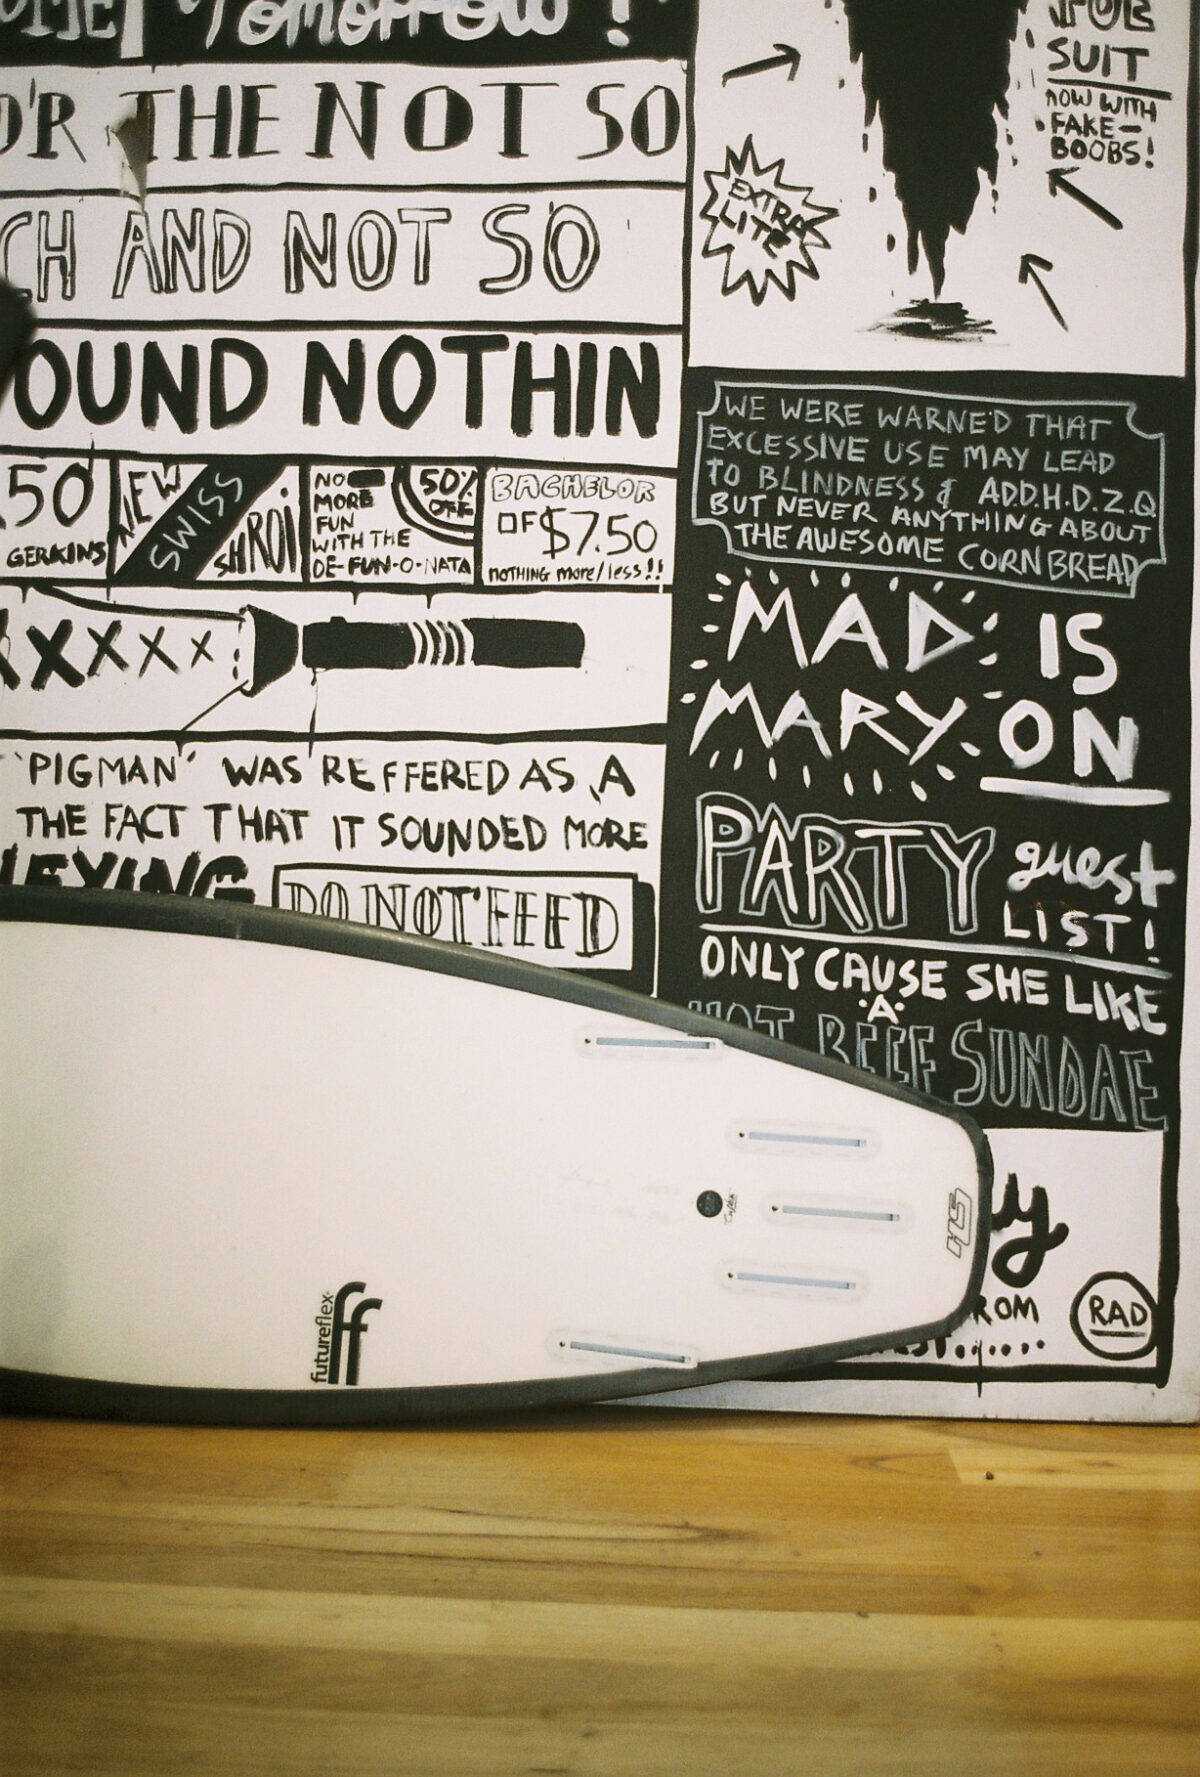 Tomorrow!
THE NOT SO
CH AND NOT SO
OUND NOTHIN
50
GERKINS
NEW
SWISS
SHROI
NO
MORE
FUN
WITH THE
DE-FUN-O-NATA
50%
OFF
BACHELOR
OF $7.50
NOTHING more/less!!
XXXXX
"PIGMAN" WAS REFFERED AS A
THE FACT THAT IT SOUNDED MORE
DO NOT FEED
SUIT
NOW WITH
FAKE-
BOOBS!
EXTRA
LITE
WE WERE WARNED THAT
EXCESSIVE USE MAY LEAD
TO BLINDNESS & A.D.D.H.D.Z.Q
BUT NEVER ANYTHING ABOUT
THE AWESOME CORNBREAD
MAD IS
MARY ON
PARTY guest
LIST!
ONLY CAUSE SHE LIKE
A
HOT BEEF SUNDAE
y
ROM
RAD
futureflex
ff
HS